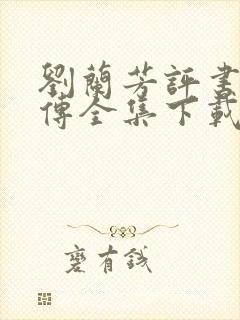 劉蘭芳評書
傳全集下載
麼有錢